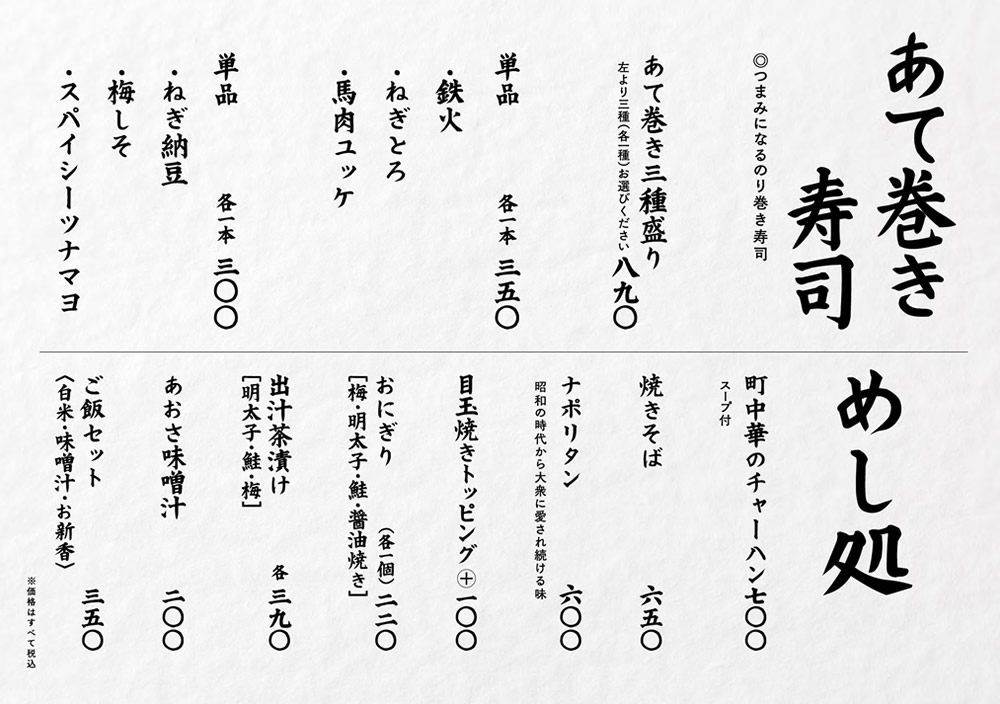 あて巻き
寿司
◎つまみになるのり巻き寿司
あて巻き三種盛り 八九〇
左より三種（各一種）お選びください
単品 各一本 三五〇
・鉄火
・ねぎとろ
・馬肉ユッケ
単品 各一本 三〇〇
・ねぎ納豆
・梅しそ
・スパイシーツナマヨ
めし処
町中華のチャーハン 七〇〇
スープ付
焼きそば 六五〇
ナポリタン 六〇〇
昭和の時代から大衆に愛され続ける味
目玉焼きトッピング ㊉ 一〇〇
おにぎり （各一個） 二二〇
［梅・明太子・鮭・醤油焼き］
出汁茶漬け 各 三九〇
［明太子・鮭・梅］
あおさ味噌汁 二〇〇
ご飯セット 三五〇
〈白米・味噌汁・お新香〉
※価格はすべて税込